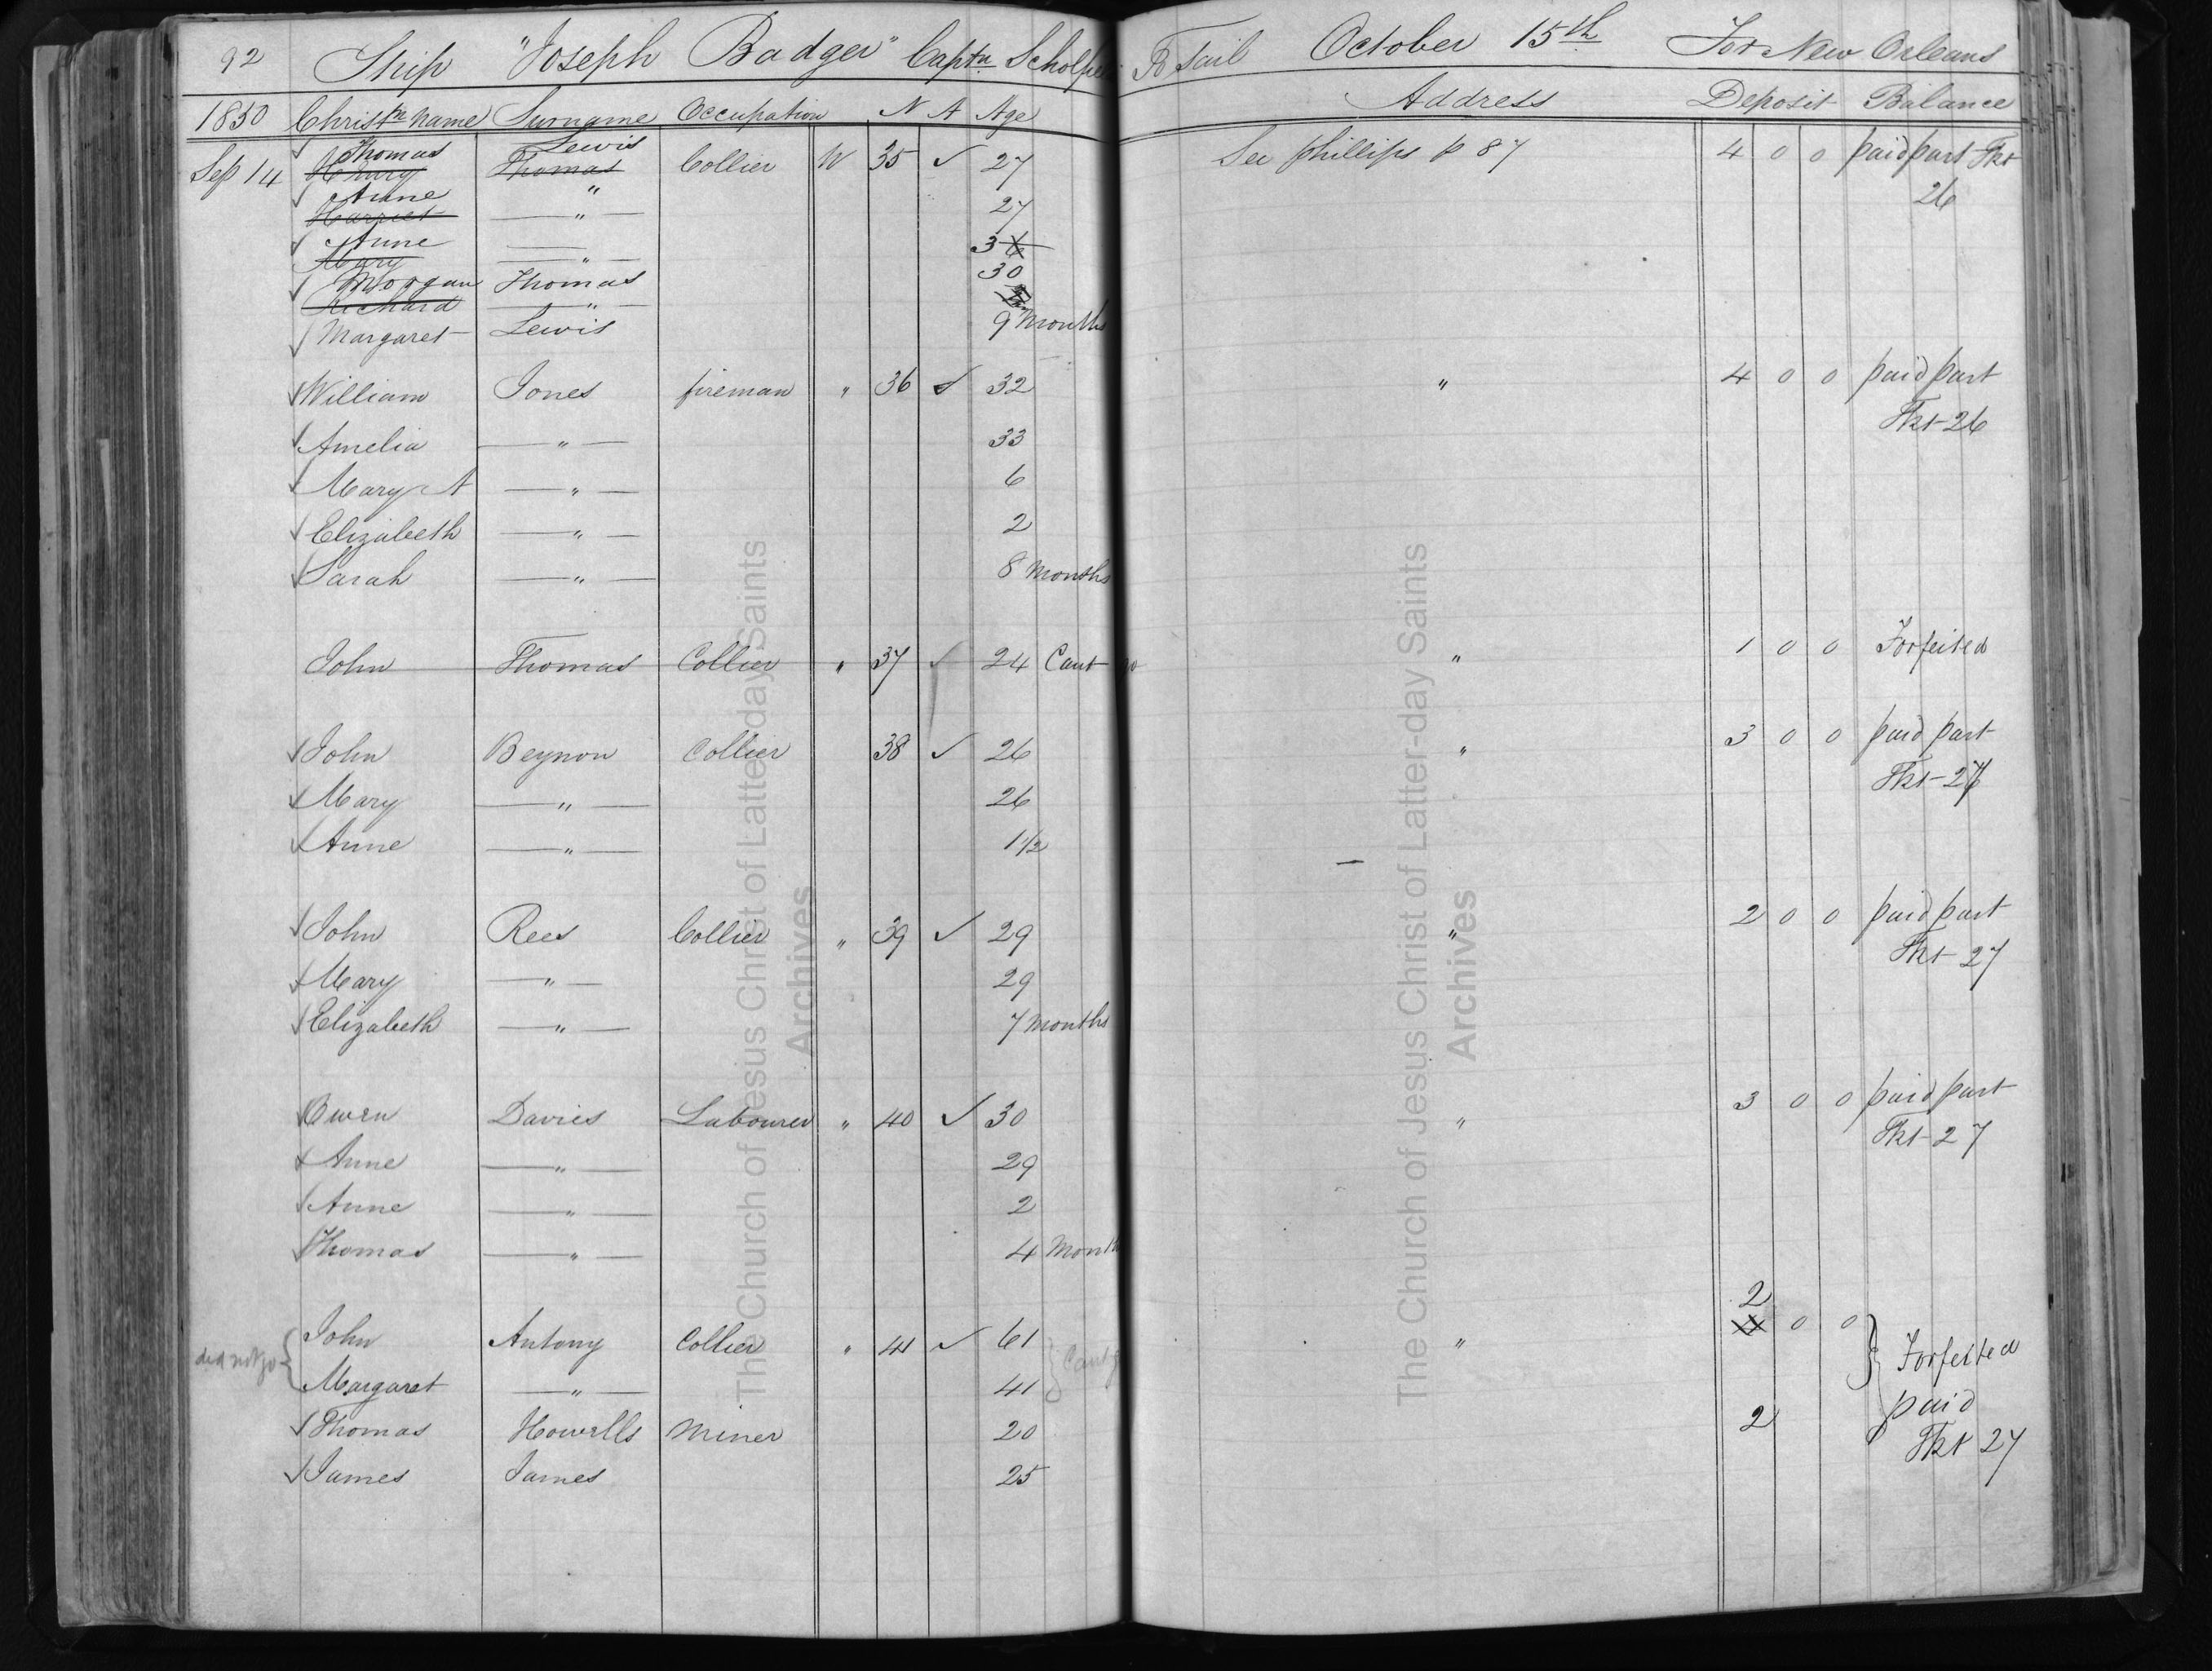 92 Ship "Joseph Badger" Captn Scholfie To Sail October 15th For New Orleans
1850 Christn Name Surname Occupation N A Age Address Deposit Balance
Thomas Lewis
Sep 14 Henry Thomas Collier W 35 ✓ 27 See phillips p 87 4 0 0 paid part Tkt
Anne "
Harriet — " — 27 26
Anne — 36
Mary — " — 30
Morgan Thomas
Richard — " —
Margaret Lewis 9 Months
William Jones fireman " 36 ✓ 32 " 4 0 0 paid part
Tkt 26
Amelia — " — 33
Mary A — " — 6
Elizabeth — " — 2
Sarah — " — 8 Months
John Thomas Collier " 37 ✓ 24 Cant go " 1 0 0 Forfeited
John Beynon Collier 38 ✓ 26 " 3 0 0 paid part
Mary — " — 26 Tkt 27
Anne — " — 1 1/2
John Rees Collier " 39 ✓ 29 " 2 0 0 paid part
Tkt 27
Mary — " — 29
Elizabeth — " — 7 Months
Owen Davies Labourer " 40 ✓ 30 " 3 0 0 paid part
Tkt 27
Anne — " — 29
Anne — " — 2
Thomas — " — 4 Month
2
did not go { John Antony Collier " 41 ✓ 61 } Cant g " 0 0 } Forfeited
Margaret — " — 41
Thomas Howells Miner 20 2 paid
Tkt 27
James James 25
The Church of Jesus Christ of Latter-day Saints
Archives
The Church of Jesus Christ of Latter-day Saints
Archives